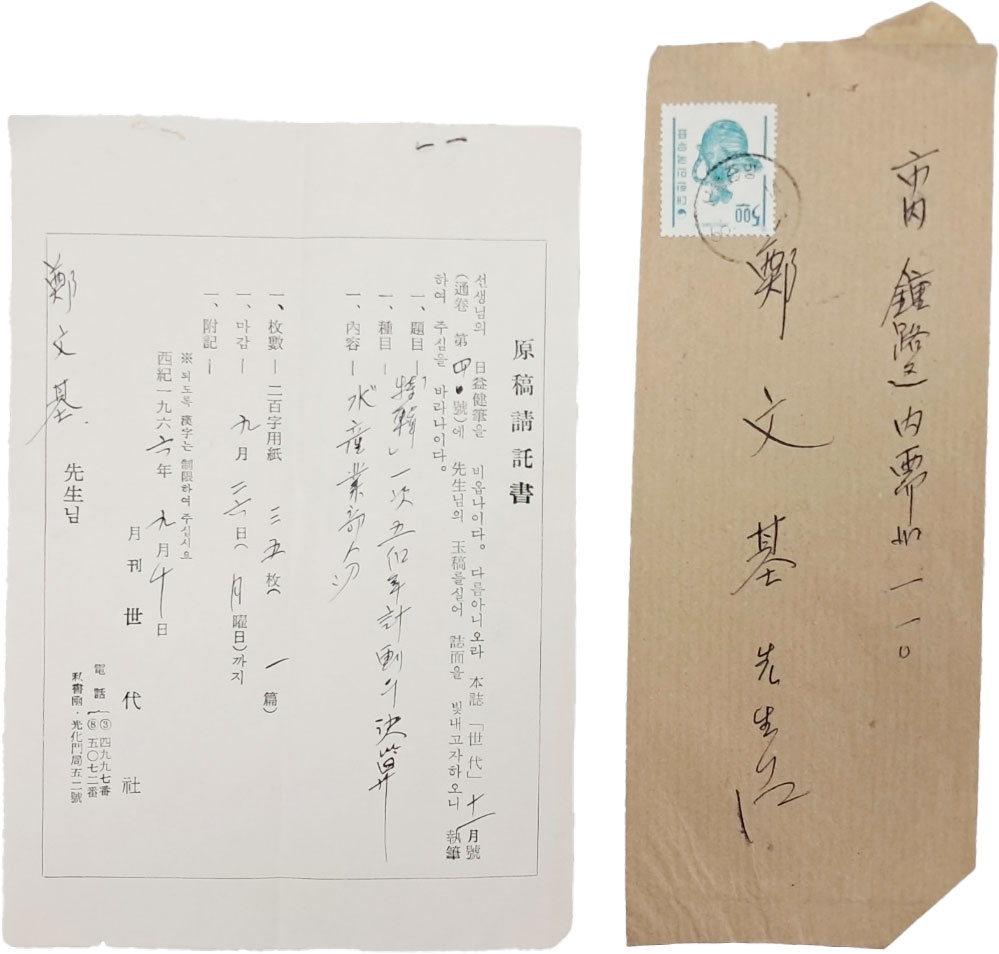 原稿請託書
선생님의 日益健筆을 비옵나이다。 다름아니오라 本誌「世代」十一月號
(通卷 第四 號)에 先生님의 玉稿를실어 誌面을 빛내고자하오니 執筆
하여 주심을 바라나이다。
一、題目―
一、種目―「特輯」一次五個年計劃의 決算
一、內容― 水産業部分
一、枚數― 二百字用紙 三五枚( 一 篇)
一、마감― 九月 日( 月曜日)까지
一、附記―
※ 되도록 漢字는 制限하여 주십시요
西紀一九六六年 九月十日
月刊 世代社
電話 ③四九九七番
⑧五〇七二番
私書函・光化門局五二號
鄭文基 先生님
市內 鍾路區 內需洞 一一〇
鄭文基 先生
5.00